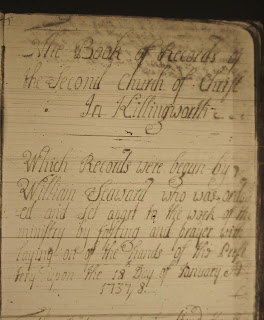 The Book of Records of
the Second Church of Christ
In Killingworth
Which Records were begun by
William Seaward who was ord
ed and set apart to the work of the
ministry by fasting and prayer with
laying on of the Hands of the Pres
try upon the 18 Day of January
1737/8